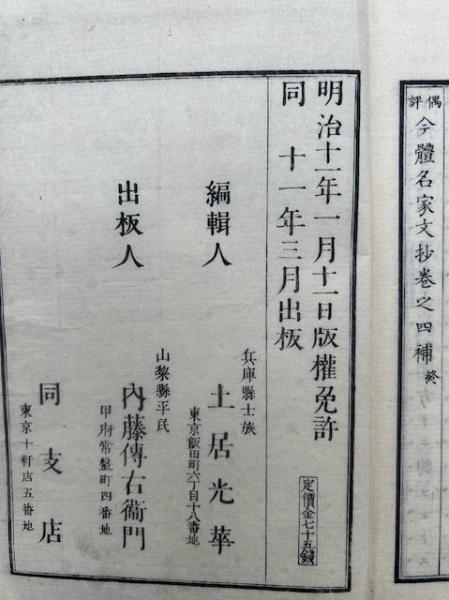 偶評今體名家文抄卷之四補終
明治十一年一月十一日版權免許
同 十一年三月出板
定價金七十五錢
編輯人
兵庫縣士族
土居光華
東京飯田町六丁目十八番地
出板人
山梨縣平民
內藤傳右衞門
甲府常盤町四番地
同支店
東京十軒店五番地